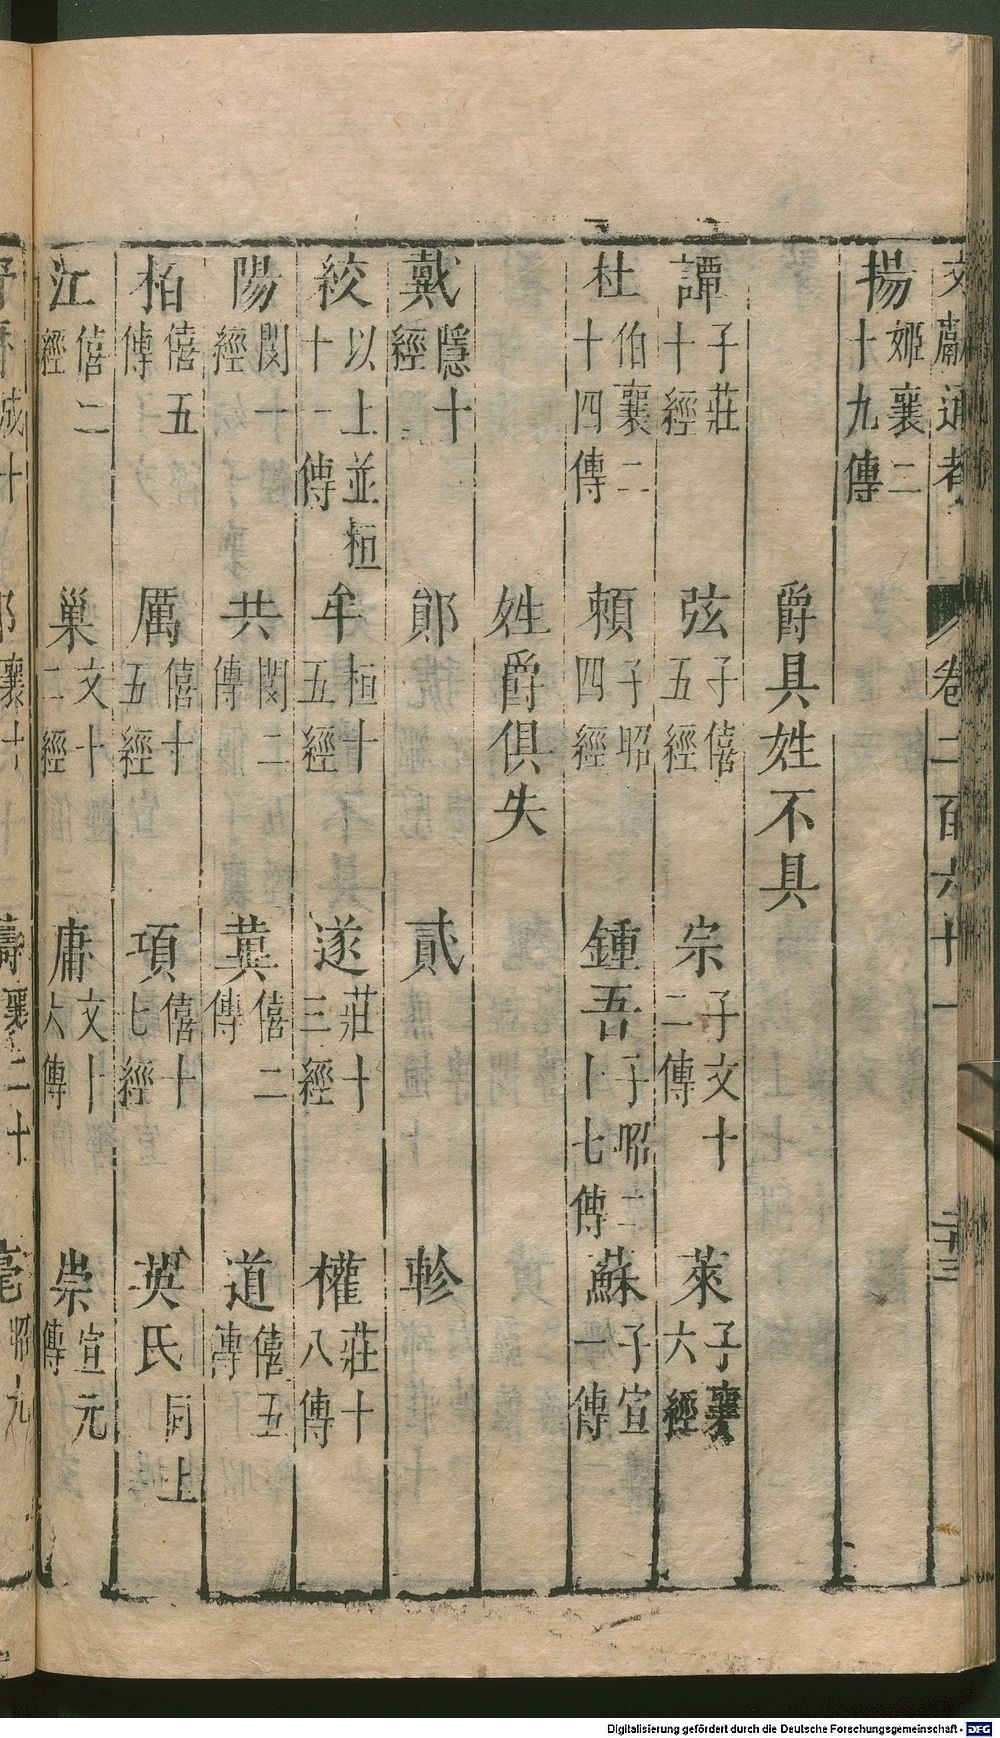 文獻通考 卷二百六十一 二十三
揚姬襄二十九傳
爵具姓不具
譚子莊十經 弦子僖五經 宗子文十二傳 萊子襄六經
杜伯襄二十四傳 頼子昭四經 鍾吾子昭二十七傳 蘇子宣一傳
姓爵俱失
戴隱十經 鄖 貳 軫
絞以上並桓十一傳 牟桓十五經 遂莊十三經 權莊十八傳
陽閔一經 共閔二傳 冀僖二傳 道僖五傳
栢僖五傳 厲僖十五經 項僖十七經 英氏同上
江僖二經 巢文十二經 庸文十六傳 崇宣元傳
Digitalisierung gefördert durch die Deutsche Forschungsgemeinschaft - DFG